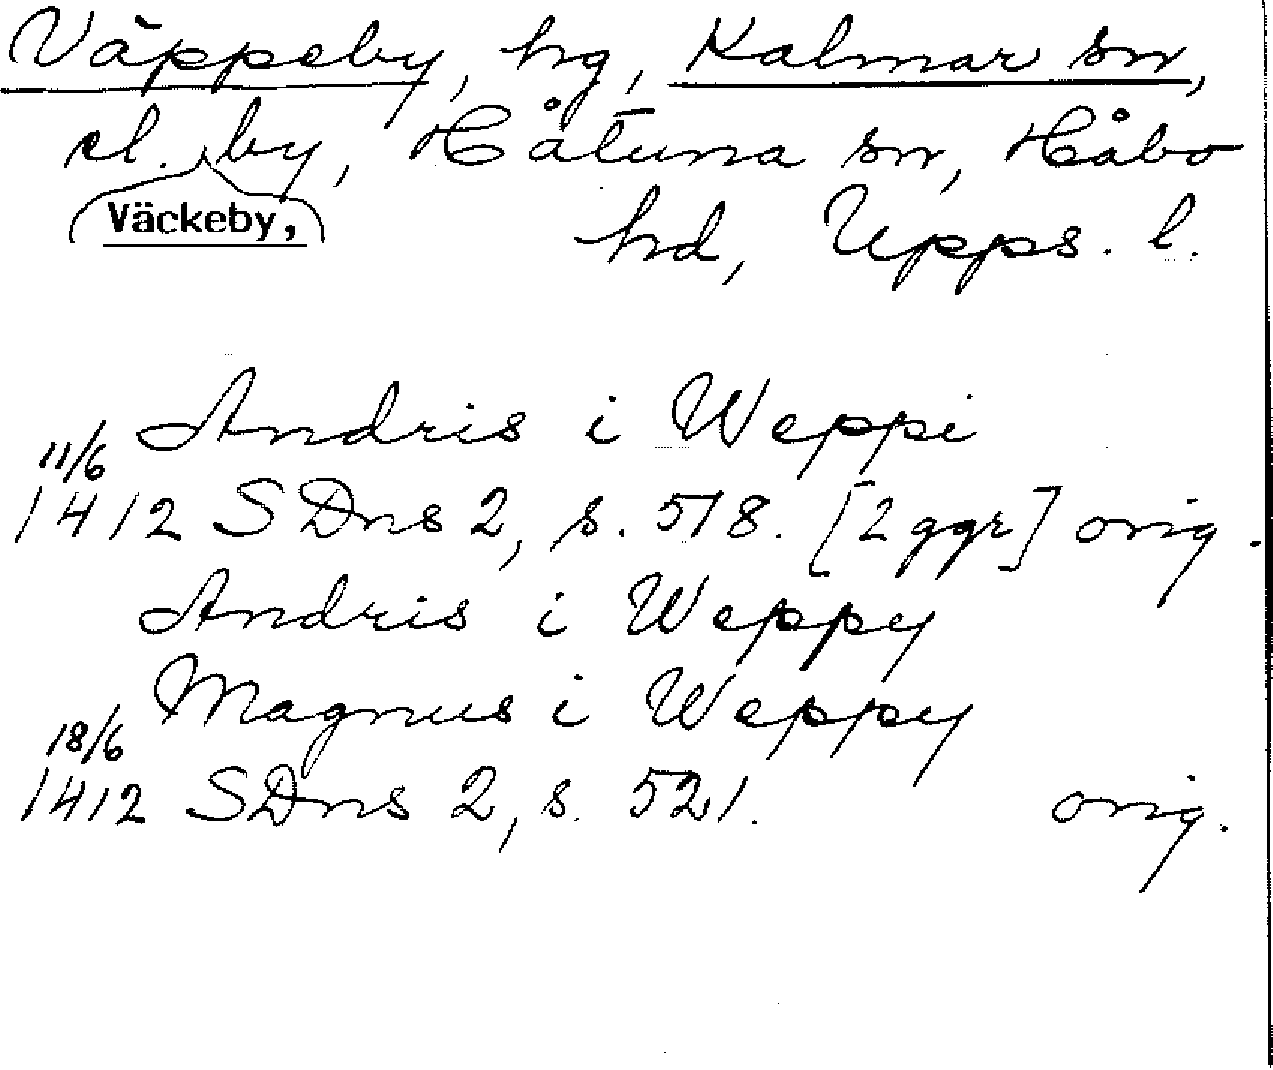 Väppeby, hg, Kalmar sn,
el. by, Håtuna sn, Håbo
Väckeby,
hd, Upps. l.
Andris i Weppi
11/6
1412 SDns 2, s. 518. [2 ggr] orig.
Andris i Weppy
Magnus i Weppy
18/6
1412 SDns 2, s. 521. orig.